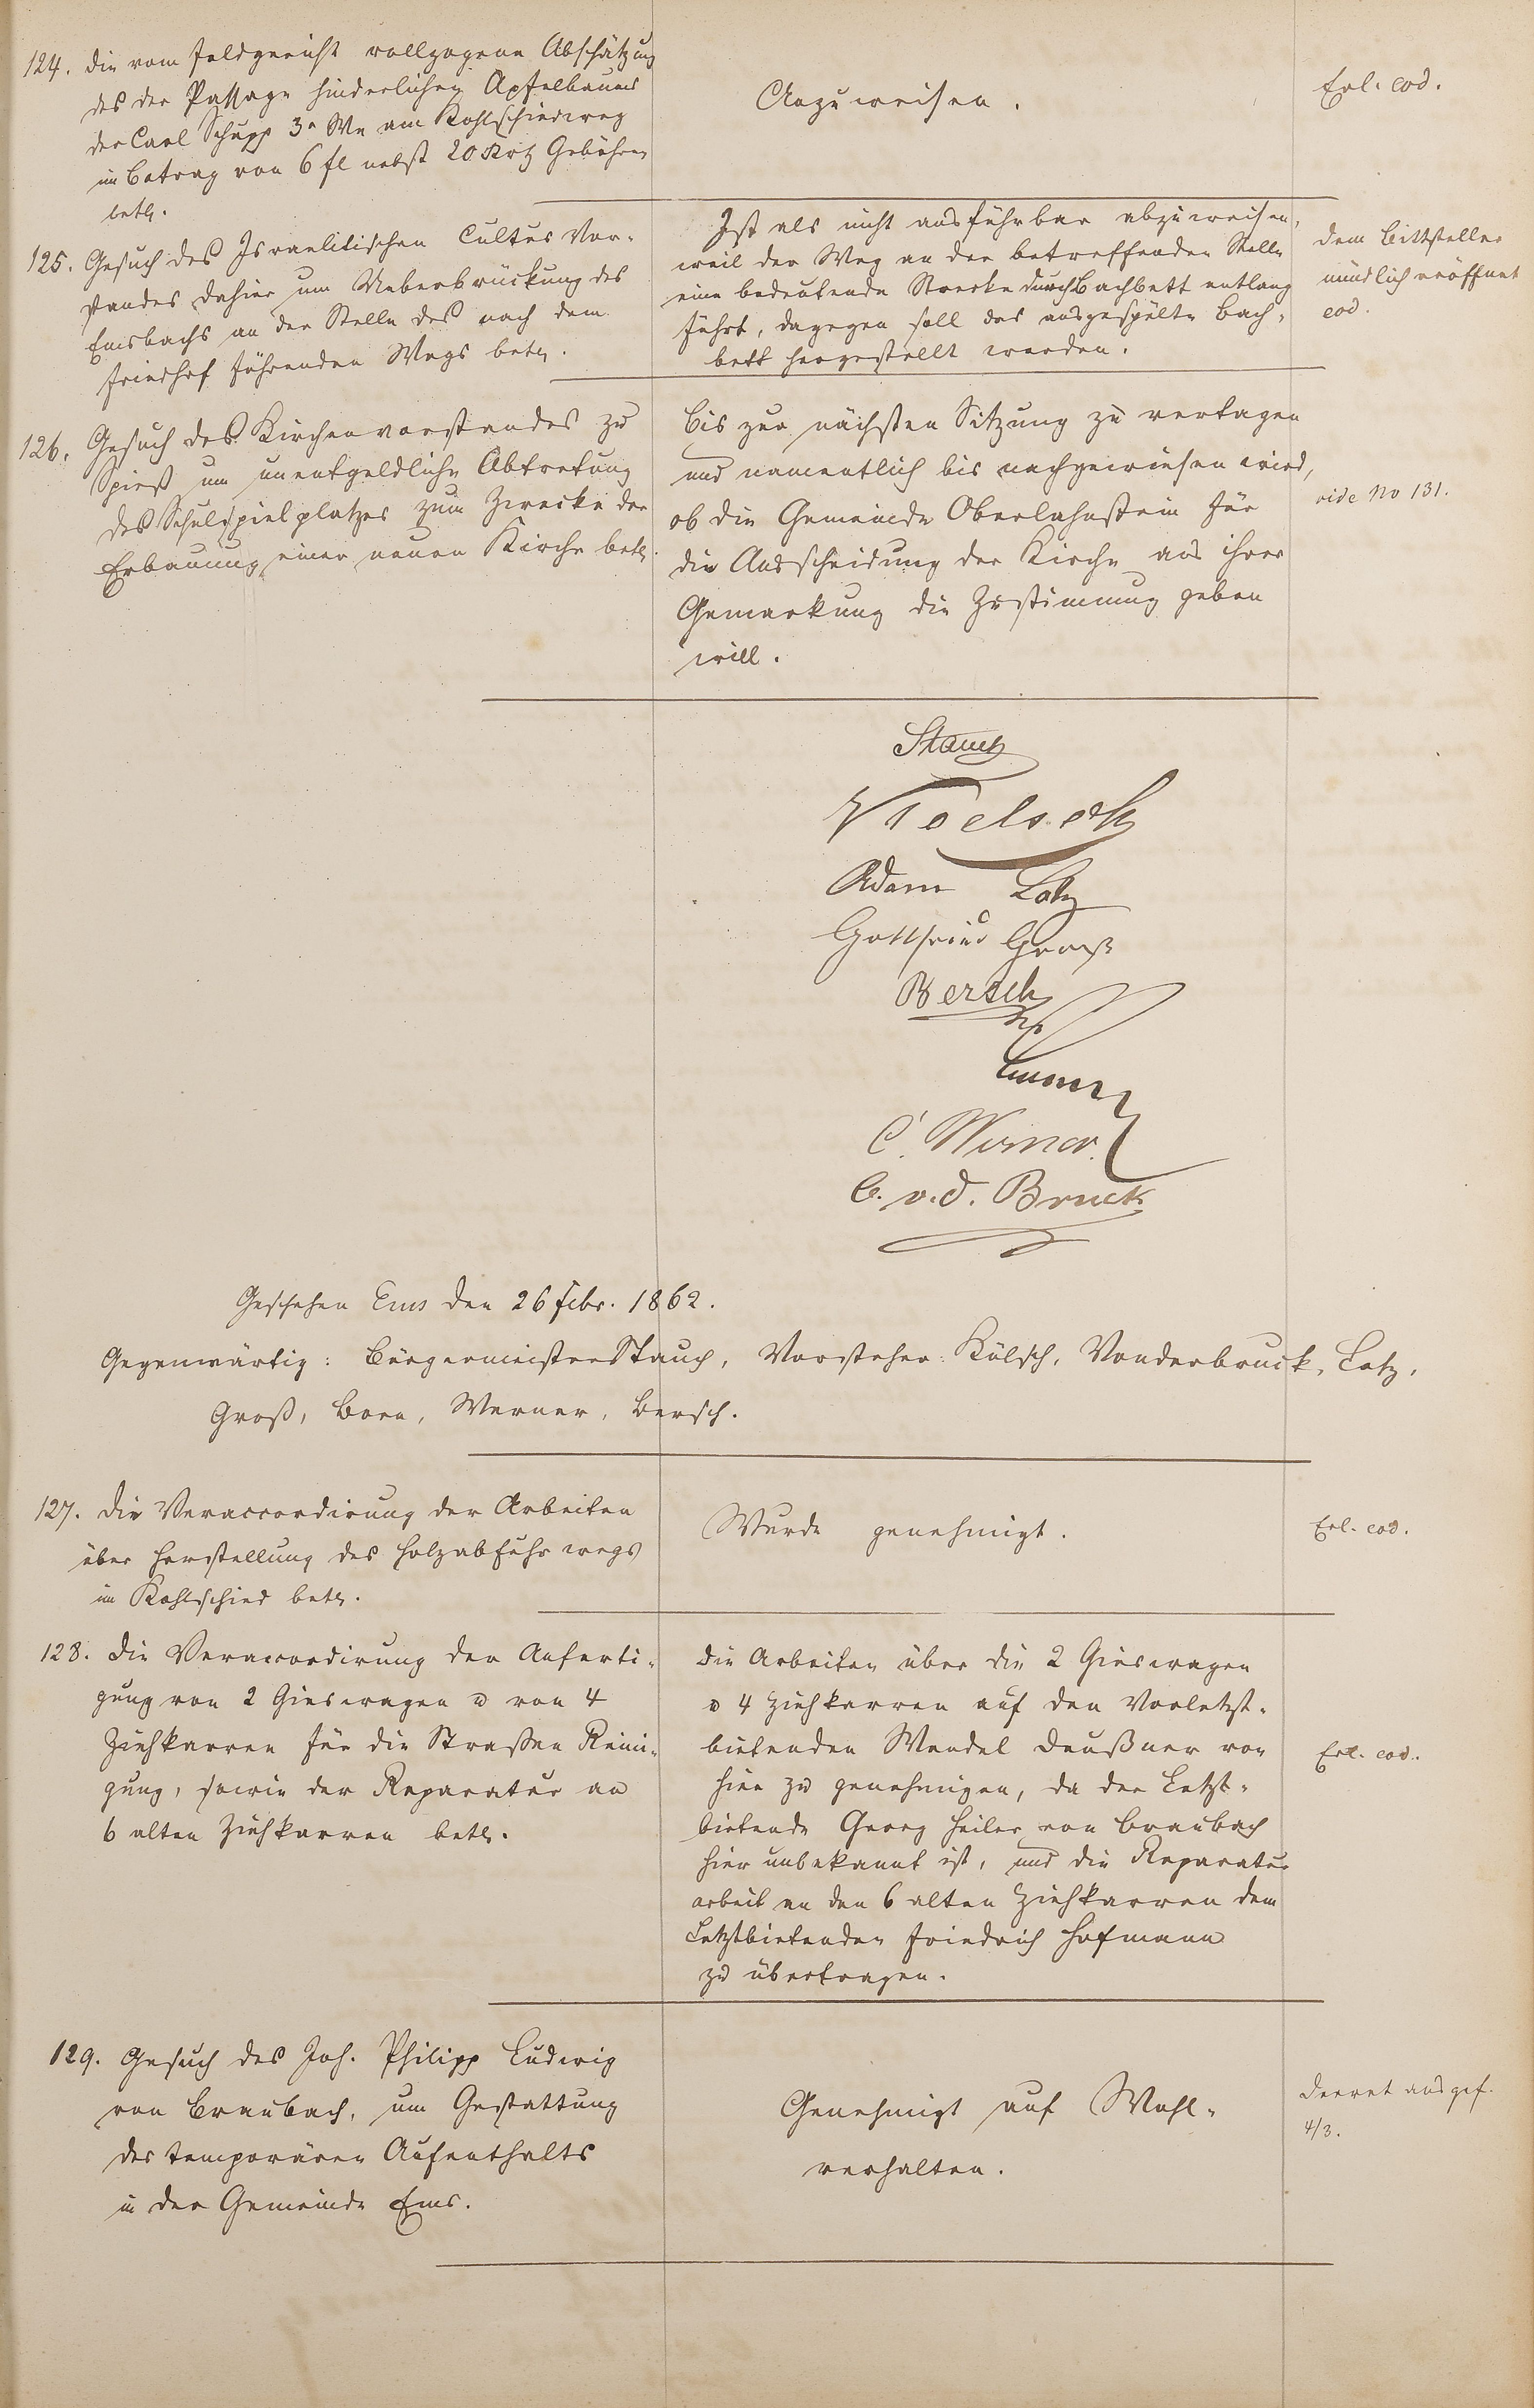 124. Die vom Feldgericht vollzogene Abschätzung
des der Passage hinderlichen Apfelbaums
der Carl Schupp 3r We am Kohlschiedweg
im Betrag von 6 fl nebst 20 Krtz Gebühren
betr.
Anzuweisen.
Erl. eod.
125. Gesuch des Israelitischen Cultus Vor-
standes dahier um Ueberbrückung des
Emsbachs an der Stelle des nach dem
Friedhof führenden Wegs betr.
Ist als nicht ausführbar abzuweisen,
weil der Weg an der betreffenden Stelle
eine bedeutende Strecke durch Bachbett entlang
führt, dagegen soll das ausgespülte Bach-
bett hergestellt werden.
dem Bittsteller
mündlich eröffnet
eod.
126. Gesuch des Kirchenvorstandes zu
Spieß um unentgeldliche Abtretung
des Schulspielplatzes zum Zwecke der
Erbauung einer neuen Kirche betr.
Bis zur nächsten Sitzung zu vertagen
und namentlich bis nachgewiesen wird,
ob die Gemeinde Oberlahnstein für
die Ausscheidung der Kirche aus ihrer
Gemarkung die Zustimmung geben
will.
vide No 131.
Stauch
Koelsch
Adam Lotz
Gottfried Groß
Bersch
C. Werner
C. v. d. Bruck
Geschehen Ems den 26 Febr. 1862.
Gegenwärtig: Bürgermeister Stauch, Vorsteher: Kölsch, Vonderbruck, Lotz,
Groß, Born, Werner, Bersch.
127. Die Veraccordirung der Arbeiten
über Herstellung des Holzabfuhrwegs
im Kohlschied betr.
Wurde genehmigt.
Erl. eod.
128. Die Veraccordirung der Anferti-
gung von 2 Gieswagen u von 4
Ziehkarren für die Straßen Reini-
gung, sowie der Reparatur an
6 alten Ziehkarren betr.
Die Arbeiten über die 2 Gieswagen
u 4 Ziehkarren auf den Vorletzt-
bietenden Wendel Deußner von
hier zu genehmigen, da der Letzt-
bietende Georg Heiler von Braubach
hier unbekannt ist, und die Reparatur
arbeit an den 6 alten Ziehkarren dem
Letztbietenden Friedrich Hofmann
zu übertragen.
Erl. eod.
129. Gesuch des Joh. Philipp Ludwig
von Braubach, um Gestattung
des temporären Aufenthalts
in der Gemeinde Ems.
Genehmigt auf Wohl-
verhalten.
Decret ausgef.
4/3.